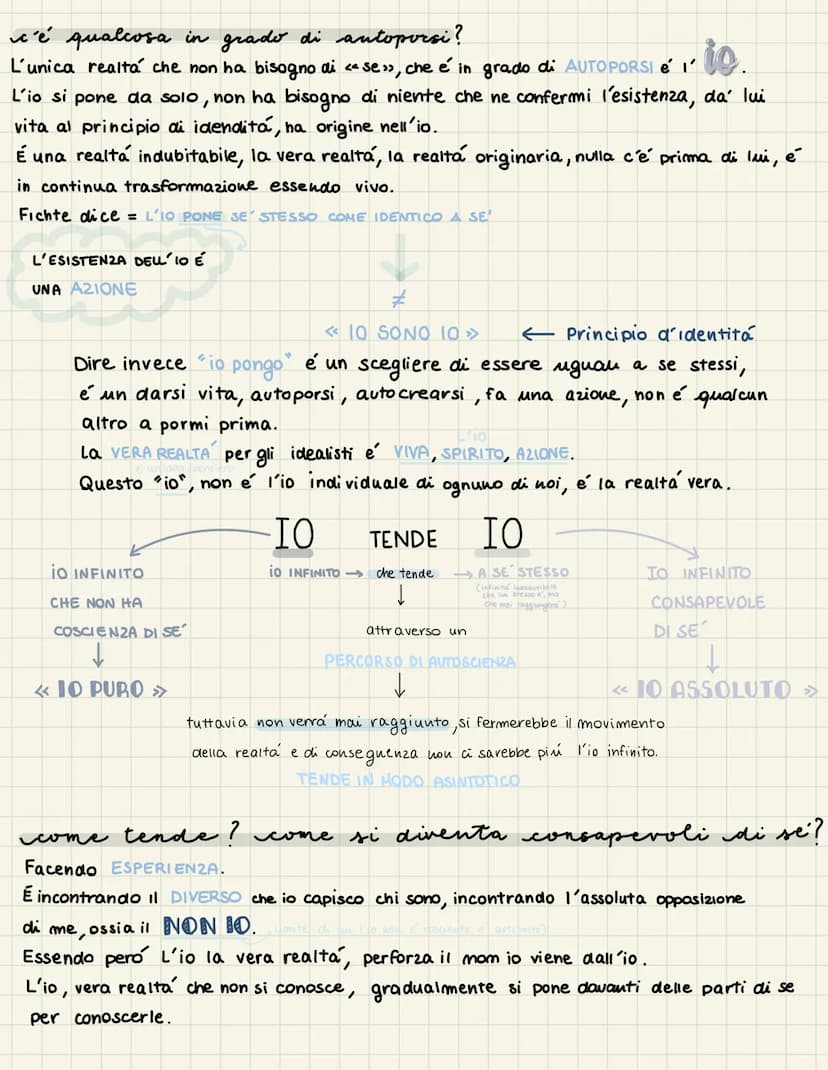 c'é qualcosa in grado di autoporsi?
L'unica realtá che non ha bisogno di «se», che é in grado di AUTOPORSI é l' io.
L'io si pone da solo, non ha bisogno di niente che ne confermi l'esistenza, da' lui
vita al principio di idenditá, ha origine nell'io.
É una realtá indubitabile, la vera realtá, la realtá originaria, nulla c'é prima di lui, é
in continua trasformazione essendo vivo.
Fichte dice = L'IO PONE SE' STESSO COME IDENTICO A SE'
L'ESISTENZA DELL'IO É
UNA AZIONE
≠
« IO SONO IO » ← Principio d'identitá
Dire invece "io pongo" é un scegliere di essere uguali a se stessi,
é un darsi vita, autoporsi, autocrearsi, fa una azione, non é qualcun
altro a pormi prima.
L'IO
La VERA REALTA' per gli idealisti é VIVA, SPIRITO, AZIONE.
Questo "io", non é l'io individuale di ognuno di noi, é la realtá vera.
IO TENDE IO
iO INFINITO
CHE NON HA
COSCIENZA DI SE'
↓
« IO PURO »
iO INFINITO → che tende → A SE' STESSO
che mai raggiungerá)
↓
attraverso un
PERCORSO DI AUTOSCIENZA
↓
IO INFINITO
CONSAPEVOLE
DI SE'
↓
« IO ASSOLUTO »
tuttavia non verrá mai raggiunto, si fermerebbe il movimento
della realtá e di conseguenza non ci sarebbe piú l'io infinito.
TENDE IN MODO ASINTOTICO
come tende? come si diventa consapevoli di sé?
Facendo ESPERIENZA.
É incontrando il DIVERSO che io capisco chi sono, incontrando l'assoluta opposizione
di me, ossia il NON IO.
Essendo peró L'io la vera realtá, perforza il mom io viene dall'io.
L'io, vera realtá che non si conosce, gradualmente si pone davanti delle parti di se
per conoscerle.